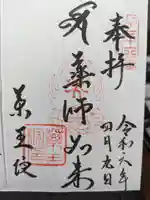 奉拝
令和六年
四月九日
薬師如来
薬王院